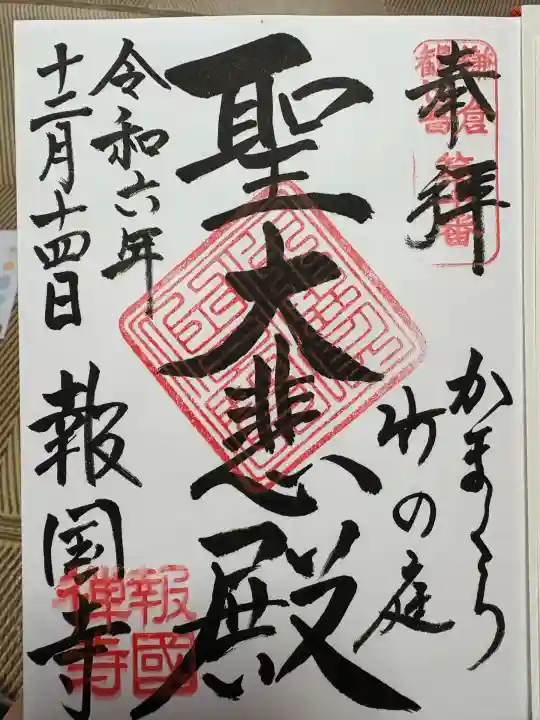 奉拝
かまくら
竹の庭
聖大悲殿
令和六年
十二月十四日
報国寺
報國
禅寺